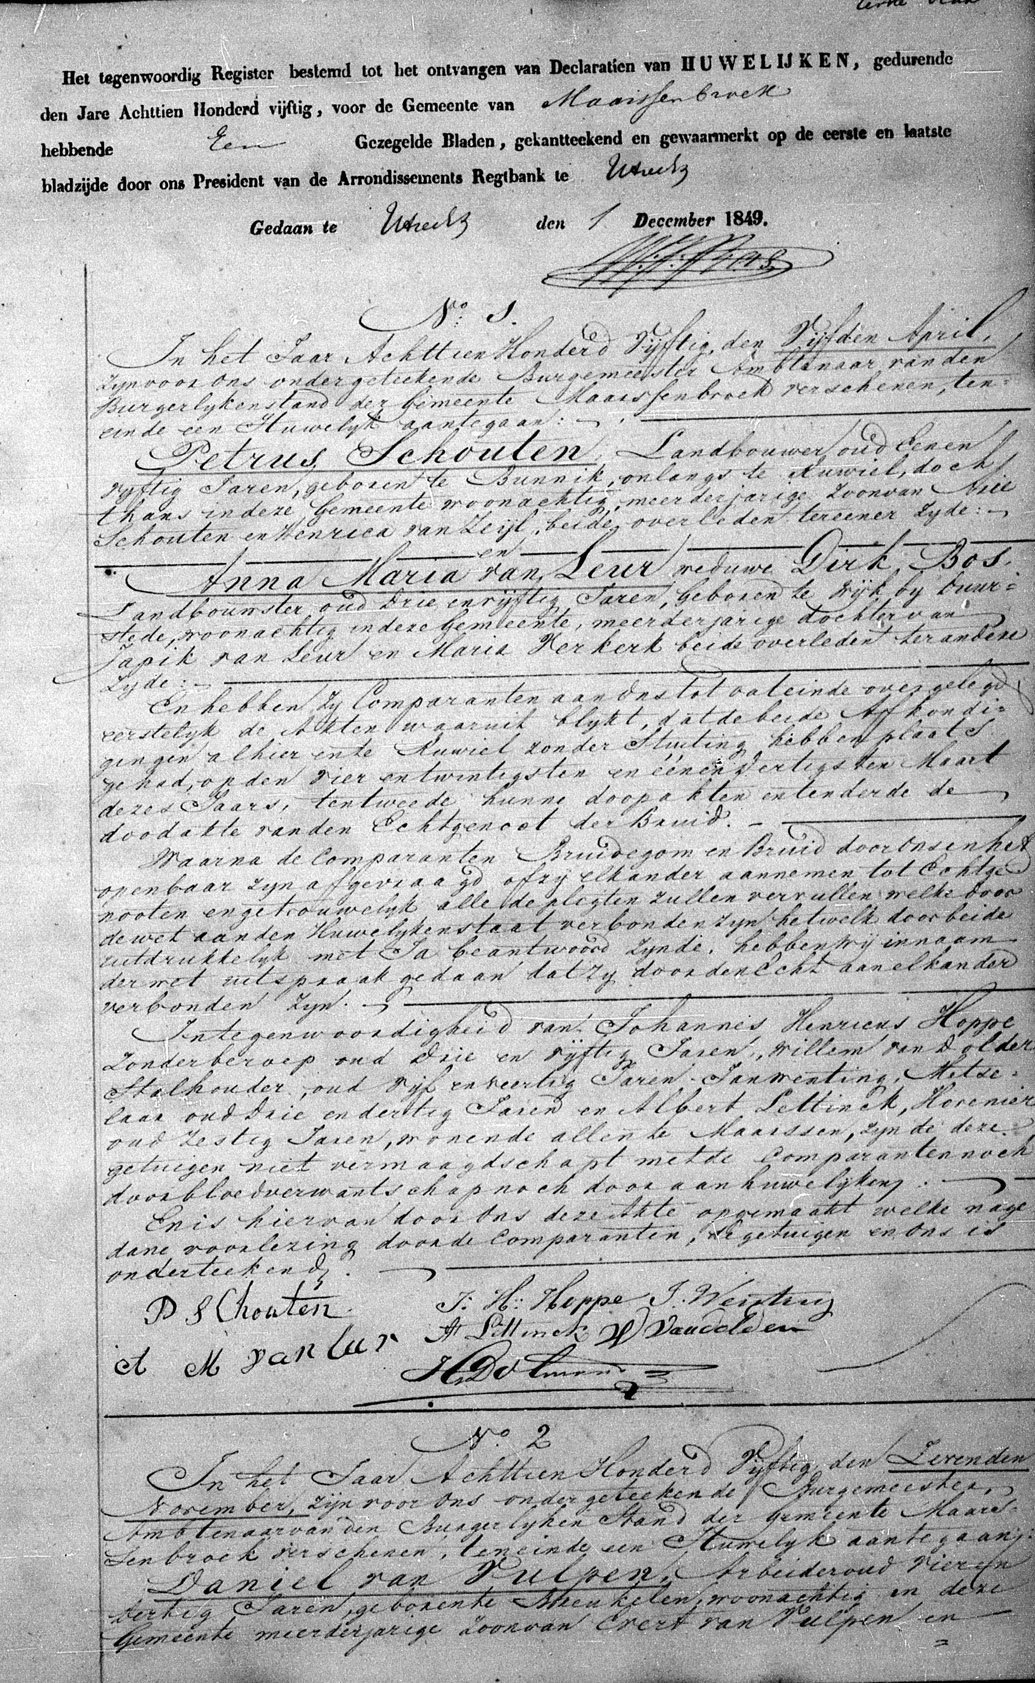 Het tegenwoordig Register bestemd tot het ontvangen van Declaratien van HUWELIJKEN, gedurende
den Jare Achttien Honderd vijftig, voor de Gemeente van Maarssenbroek
hebbende Een Gezegelde Bladen, gekantteekend en gewaarmerkt op de eerste en laatste
bladzijde door ons President van de Arrondissements Regtbank te Utrecht
Gedaan te Utrecht den 1 December 1849.
No. 1.
In het Jaar Achttien Honderd Vyftig, den Vijfden April,
zyn voor ons ondergeteekende Burgemeester Ambtenaar van den
Burgerlykenstand der Gemeente Maarssenbroek verschenen, ten
einde een Huwelyk aantegaan:
Petrus Schouten, Landbouwer, oud Eenen
vyftig Jaren, geboren te Bunnik, onlangs te Ruwiel, doch
thans in deze Gemeente woonachtig, meerderjarige Zoon van
Schouten en Henrica van Zeijl, beide overleden ter eener zyde:
en
Anna Maria van Leur weduwe Dirk Bos.
Landbouwster, oud drie en vyftig Jaren, geboren te Wyk by Duur=
stede, woonachtig in deze Gemeente, meerderjarige dochter van
Japik van Leur en Maria Verkerk beide overleden ter andere
Zyde:
En hebben Zy Comparanten aan Ons tot dat einde overgelegd
eerstelyk de Akten waaruit blykt, dat de beide Afkondi=
gingen alhier en te Ruwiel zonder Stuiting hebben plaats
gehad, op den vier en twintigsten en éénen dertigsten Maart
dezes Jaars, ten tweede hunne doopakten en ten derde de
doodakte van den Echtgenoot der Bruid.
Waarna de Comparanten Bruidegom en Bruid door Ons in het
openbaar zyn afgevraagd of zy elkander aannemen tot Echtge
nooten en getrouwelyk alle de pligten zullen vervullen welke door
de wet aan den Huwelykenstaat verbonden zyn, hetwelk door beide
uitdrukkelyk met Ja beantwoord zynde, hebben wy in naam
der wet uitspraak gedaan dat zy door den Echt aan elkander
verbonden zyn.
In tegenwoordigheid van Johannes Henricus Hoppe
Zonder beroep oud drie en vyftig Jaren, Willem van Dolder
Stalhouder, oud vyf en veertig Jaren, Jan Wenting, Metse=
laar oud drie en dertig Jaren en Albert Lettinck, Hovenier
oud Zestig Jaren, wonende allen te Maarssen, zynde deze
getuigen niet vermaagdschapt met de Comparanten noch
door bloedverwantschap noch door aanhuwelyking.
En is hiervan door Ons deze Akte opgemaakt welke na ge
dane voorlezing door de Comparanten, de getuigen en Ons is
onderteekend.
P Schouten J: H: Hoppe J. Wenting
A Lettinck W Van Dolder
A M van Leur
No. 2
In het Jaar Achttien Honderd Vyftig, den Zevenden
November, zijn voor Ons ondergeteekende Burgemeester,
Ambtenaar van den Burgerlyken Stand der Gemeente Maars=
senbroek verschenen, ten einde een Huwelyk aantegaan:
Daniel van Vulpen, Arbeider oud Vier en
dertig Jaren, geboren te Breukelen, woonachtig in deze
Gemeente meerderjarige Zoon van Evert van Vulpen en